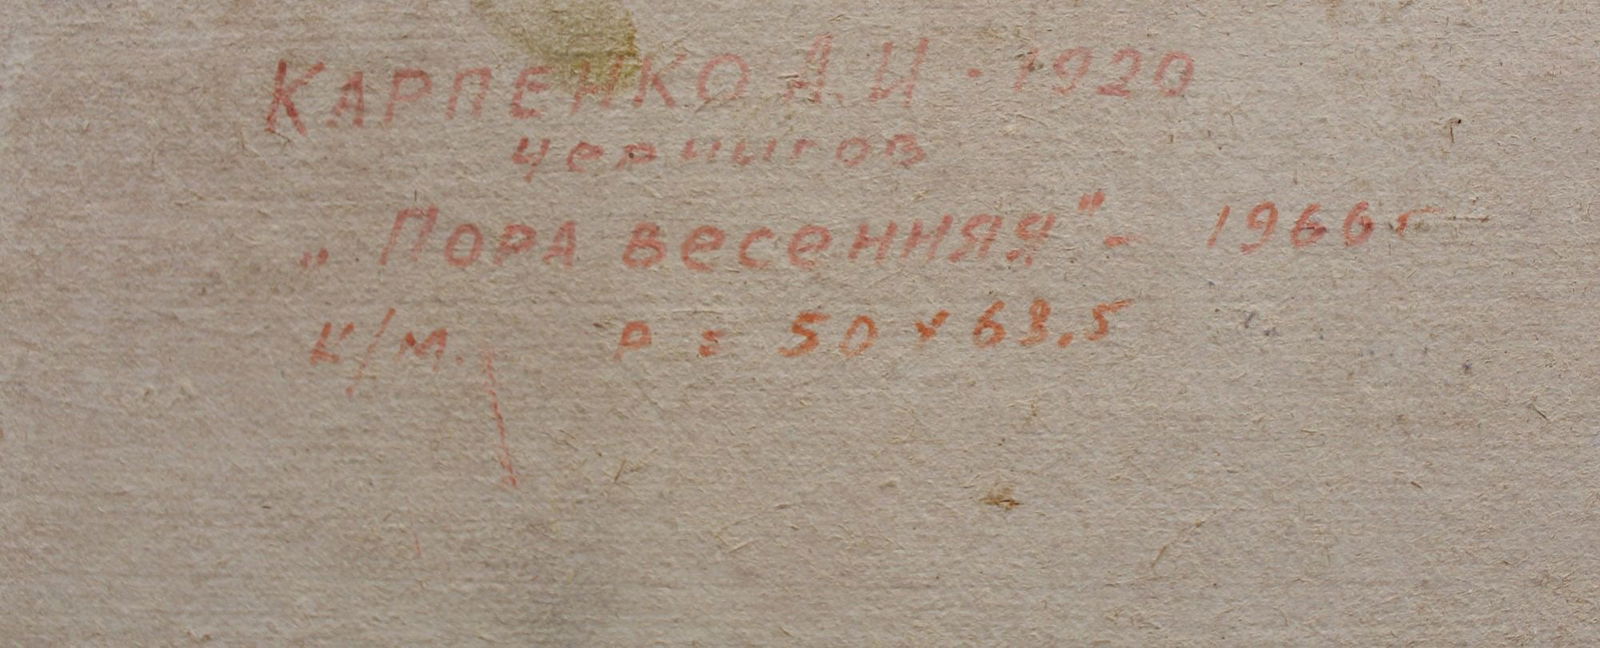 КАРПЕНКО А.И - 1920
чернигов
„ПОРА весенняя" - 1966г
К/м. Р = 50 x 63,5